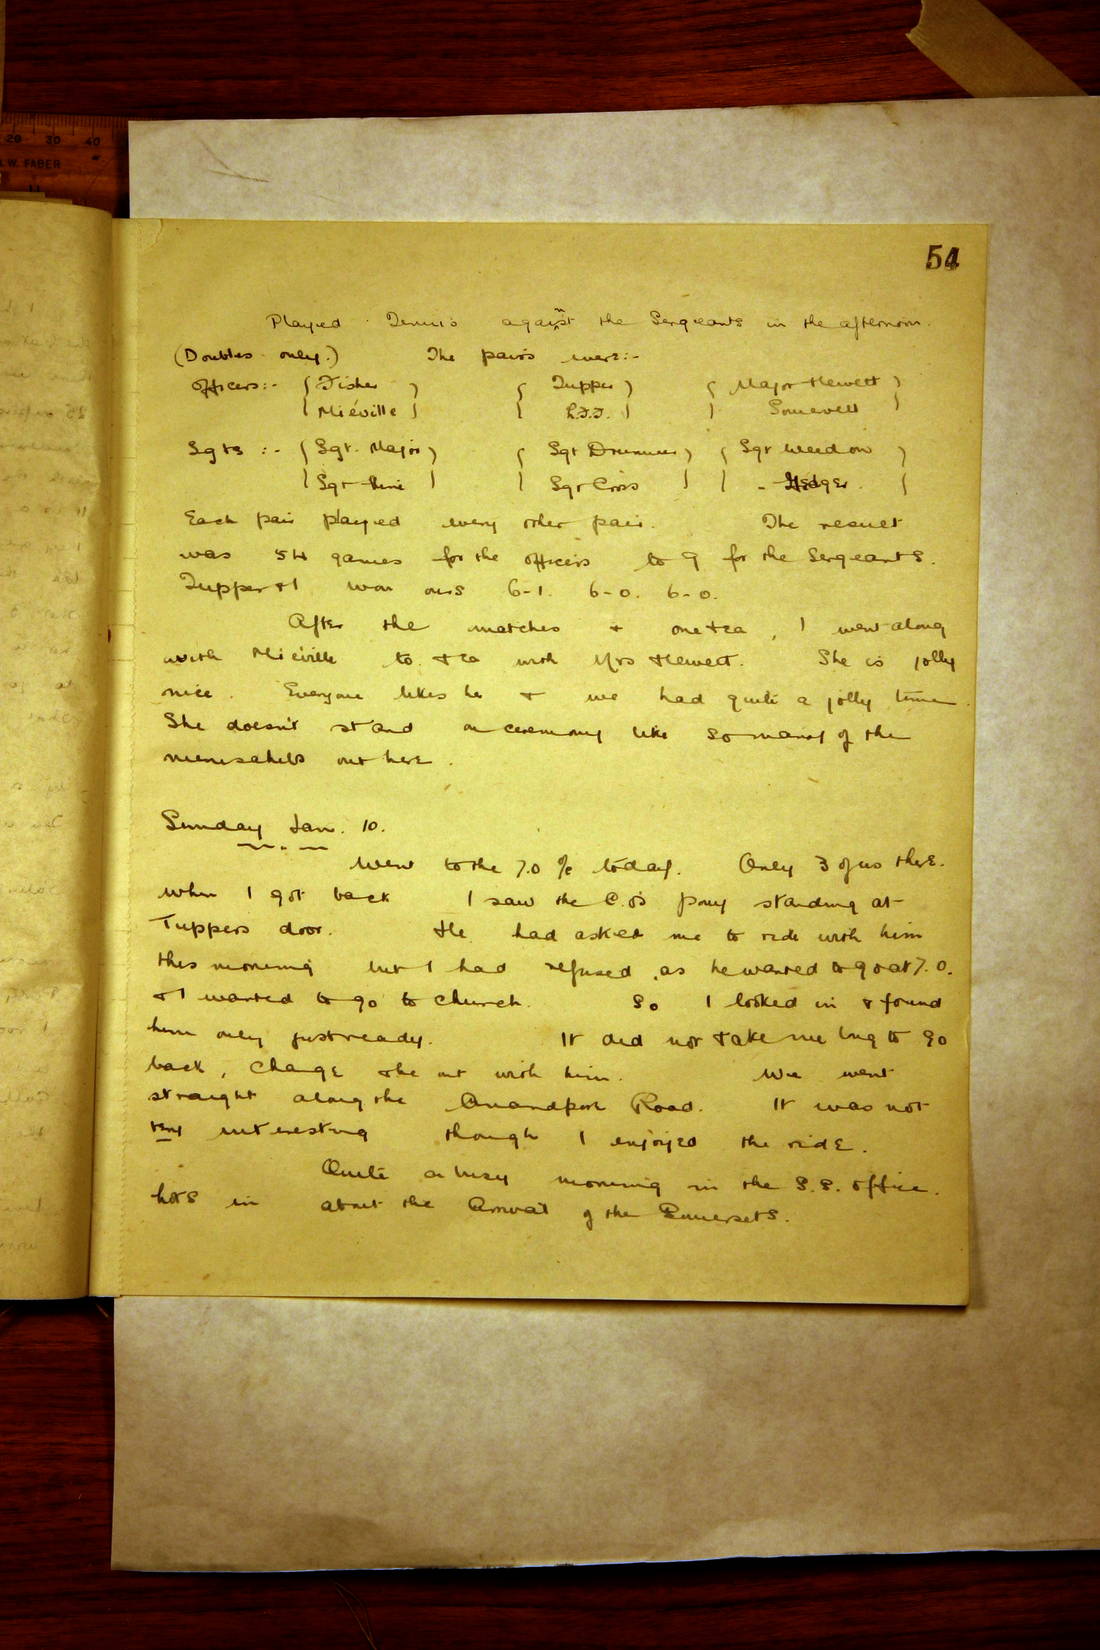 54
Played Tennis against the Sergeants in the afternoon.
(Doubles only.) The pairs were:-
Officers:- { Fisher } { Tupper } { Major Hewett }
{ Miéville } { } { Somervell }
Sgts :- { Sgt. Major } { Sgt Drummer } { Sgt Weedon }
{ Sgt } { Sgt Cross } { - Hedger. }
Each pair played every other pair. The result
was 54 games for the officers to 9 for the Sergeants.
Tupper & I won ours 6-1. 6-0. 6-0.
After the matches & one tea, I went along
with Miéville to tea with Mrs Hewett. She is jolly
nice. Everyone likes her & we had quite a jolly time.
She doesn't stand on ceremony like so many of the
memsahibs out here.
Sunday Jan. 10.
Went to the 7.0 % today. Only 3 of us there.
When I got back I saw the C.O's pony standing at
Tuppers door. He had asked me to ride with him
this morning but I had refused, as he wanted to go at 7.0.
& I wanted to go to church. So I looked in & found
him only just ready. It did not take me long to go
back, change & be out with him. We went
straight along the Anandpore Road. It was not
very interesting though I enjoyed the ride.
Quite a busy morning in the S.S. office.
hots in about the Arrival of the Somersets.
20 30 40
W. FABER